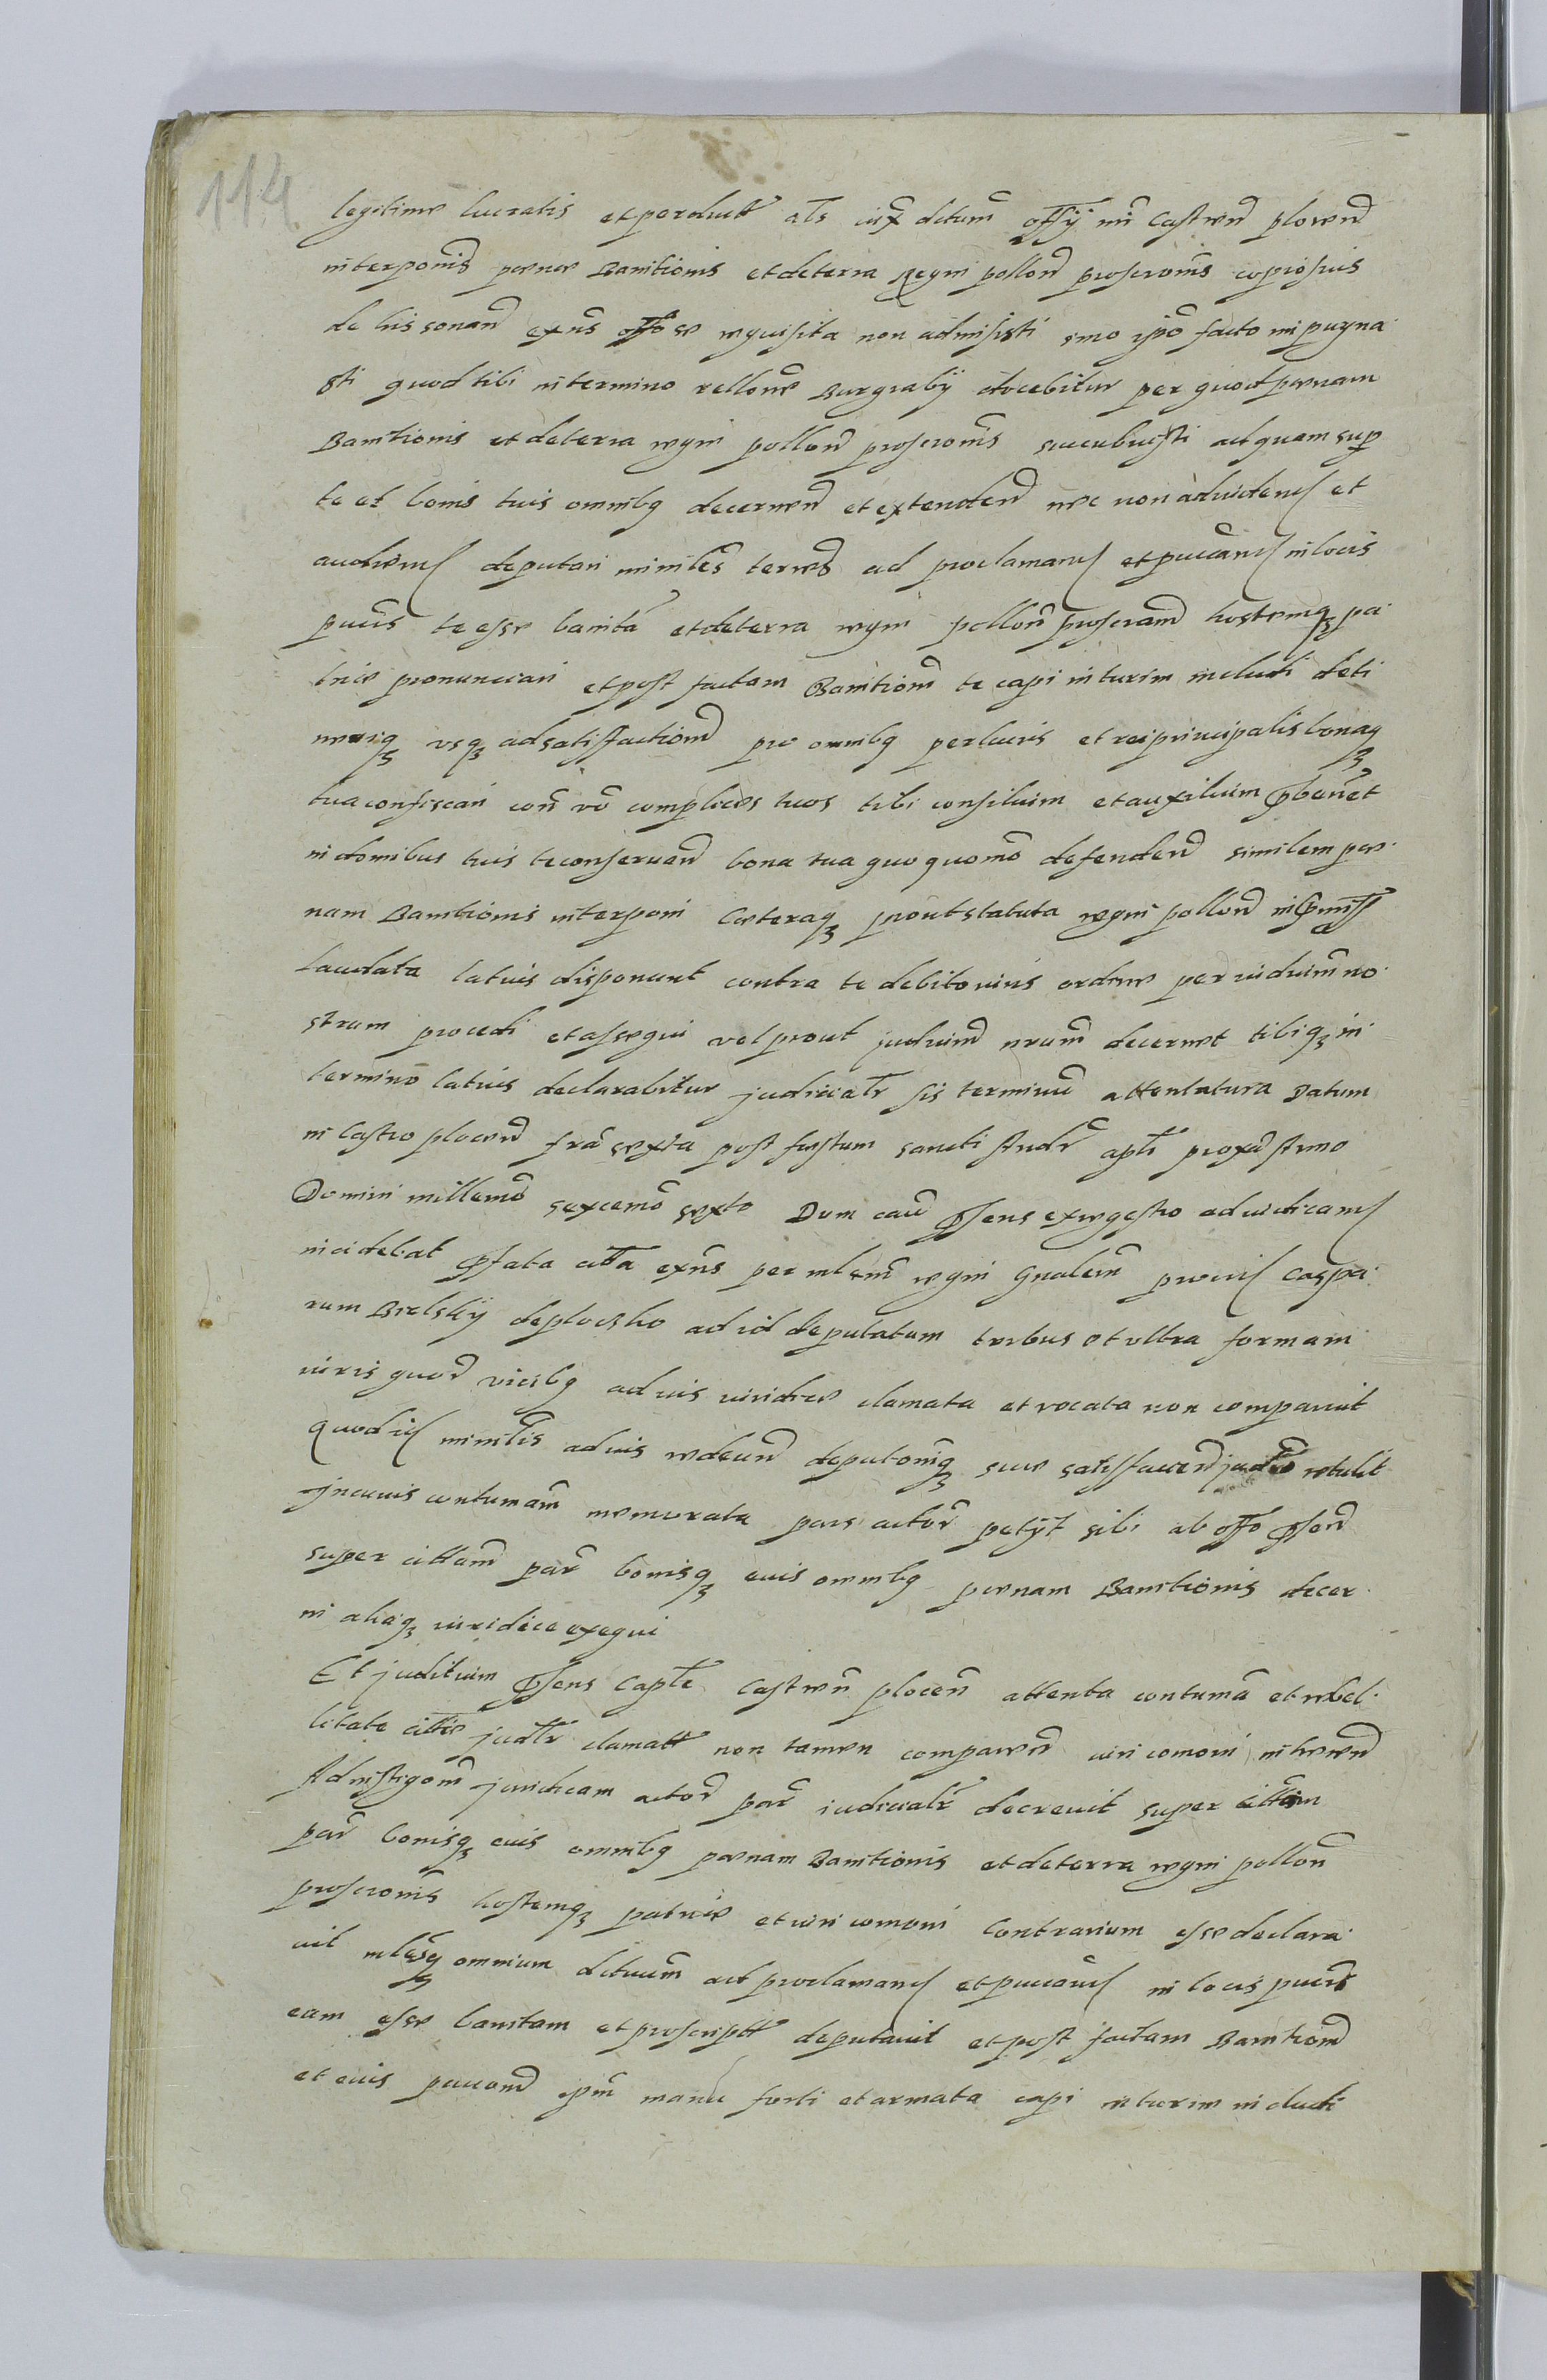 114
legitime lucratis et perduct als iux dctum offij mei Castren plocen
interponis poenae Banitionis et de terra Regni pollon proscronis copiosius
de his sonan exns offo se requisita non admisisti imo ipo facto impugna
sti quod tibi in termino rellone Burgrabij docebitur per quod poenam
Banitionis et de terra regni pollon proscronis succubuisti ad quam sup
te et bonis tuis omnibq decernen et extenden nec non ad videns et
audiens deputari ministe terres ad proclamans et puucans in locis
pucis te esse banita et de terra regni pollon proscram hostemq pa
triae pronunciari et post factam Banitiom te capi in turim includi deti
neriq usq ad satisfaction pro omnibq perlucris et rei principalis bonaq
tua confiscari con vo complices tuos tibi consilium et auxilium pbenet
in domibus tuis te conseruan bona tua quoquomo defenden similem poe
nam Banitionis interponi Caeteraq prout statuta regni pollon in pmiss
laudata latius disponunt contra te debito iuris ordine per iudicium no
strum procedi et assequi vel prout judicium nrum decernet tibiq in
termino latius declarabitur judicialr sis terminu attentatura Datum
in Castro plocen fra sexta post festum sancti Andr apli proxa Anno
Domini millemo sexcemo sexto Dum cau psens ex regestro ad iudicans
incidebat psata citta exns per mlsem regni Gnalem prouis Caspa
rum Bielskij de plocsko ad id deputatum tribus et ultra formam
iuris quor vicibq ad ius iuridice clamata et vocata non comparuit
quod is ministlis ad ius redeun deputoniq suae satisfaccen judlr retulit
In cuius contumam memorata pars actor petyt sibi ab offo psen
super cittam par bonisq euis omnibq poenam Banitionis decer
ni aliaq iuridice exequi
Et juditium psens Capte Castren plocen attenta contuma et rebel
litate citte judlr clamatt non tamen comparen iuri comoni inheren
Ad instigom juridicam actor par iudicialr decreuit super cittam
par bonisq euis omnibq poenam Banitionis et de terra regni pollon
proscronis hostemq patriae et iuri comoni Contrarium esse declara
uit mlesq omnium dctuum ad proclamans et puucans in locis pucis
eam esse banitam et proscriptt deputauit et post factam Banition
et euis puucom ipm manu forti et armata capi in turim includi